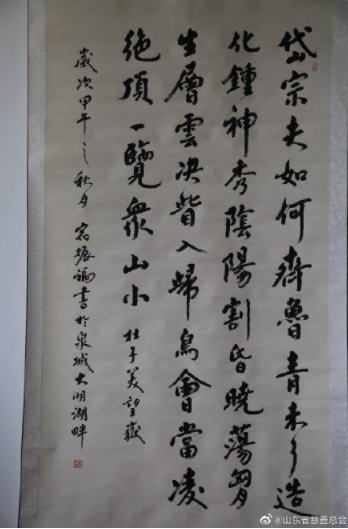 岱宗夫如何齊魯青未了造
化鍾神秀陰陽割昏曉蕩胷
生層雲決眥入歸鳥會當凌
絶頂一覽衆山小杜子美望嶽
歲次甲午之秋月宿振謁書於泉城大明湖畔
@山东省慈善总会